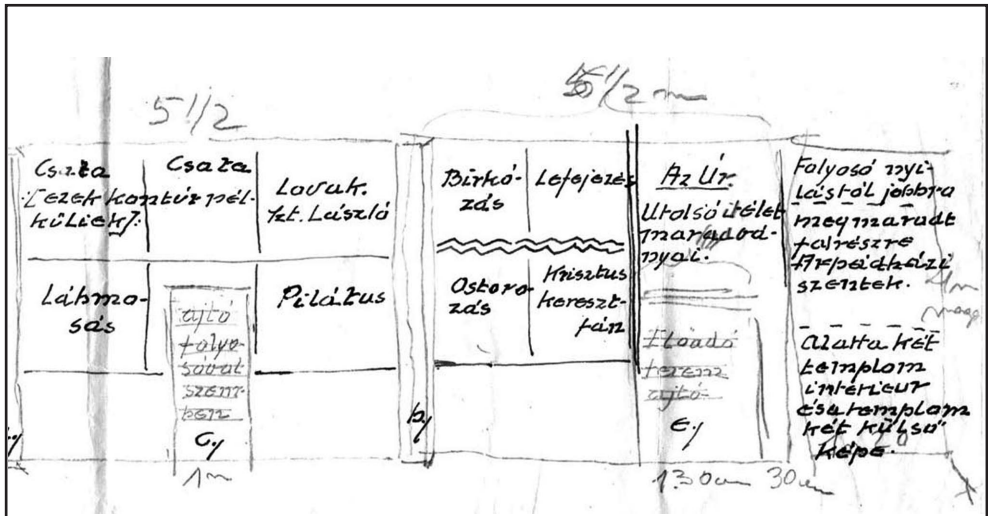 5 1/2
5 1/2 m
Csata
[ezek kontúr nél-
küliek].
Csata
Lovak.
Szt. László
Lábmo-
sás
ajtó
folyo-
sóval
szem-
ben
c,
Pilátus
1 m
b,
Birkó-
zás
Lefejezés
Ostoro-
zás
Krisztus
kereszt-
fán
Az Úr.
Utolsó ítélet
maradvá-
nyai.
Előadó
terem
ajtó
e,
130 cm
30 cm
Folyosó nyí-
lástól jobbra
megmaradt
falrészre
Árpádházi
szentek.
4 m
magas
Alatta két
templom
intérieur
és a templom
két külső
képe.